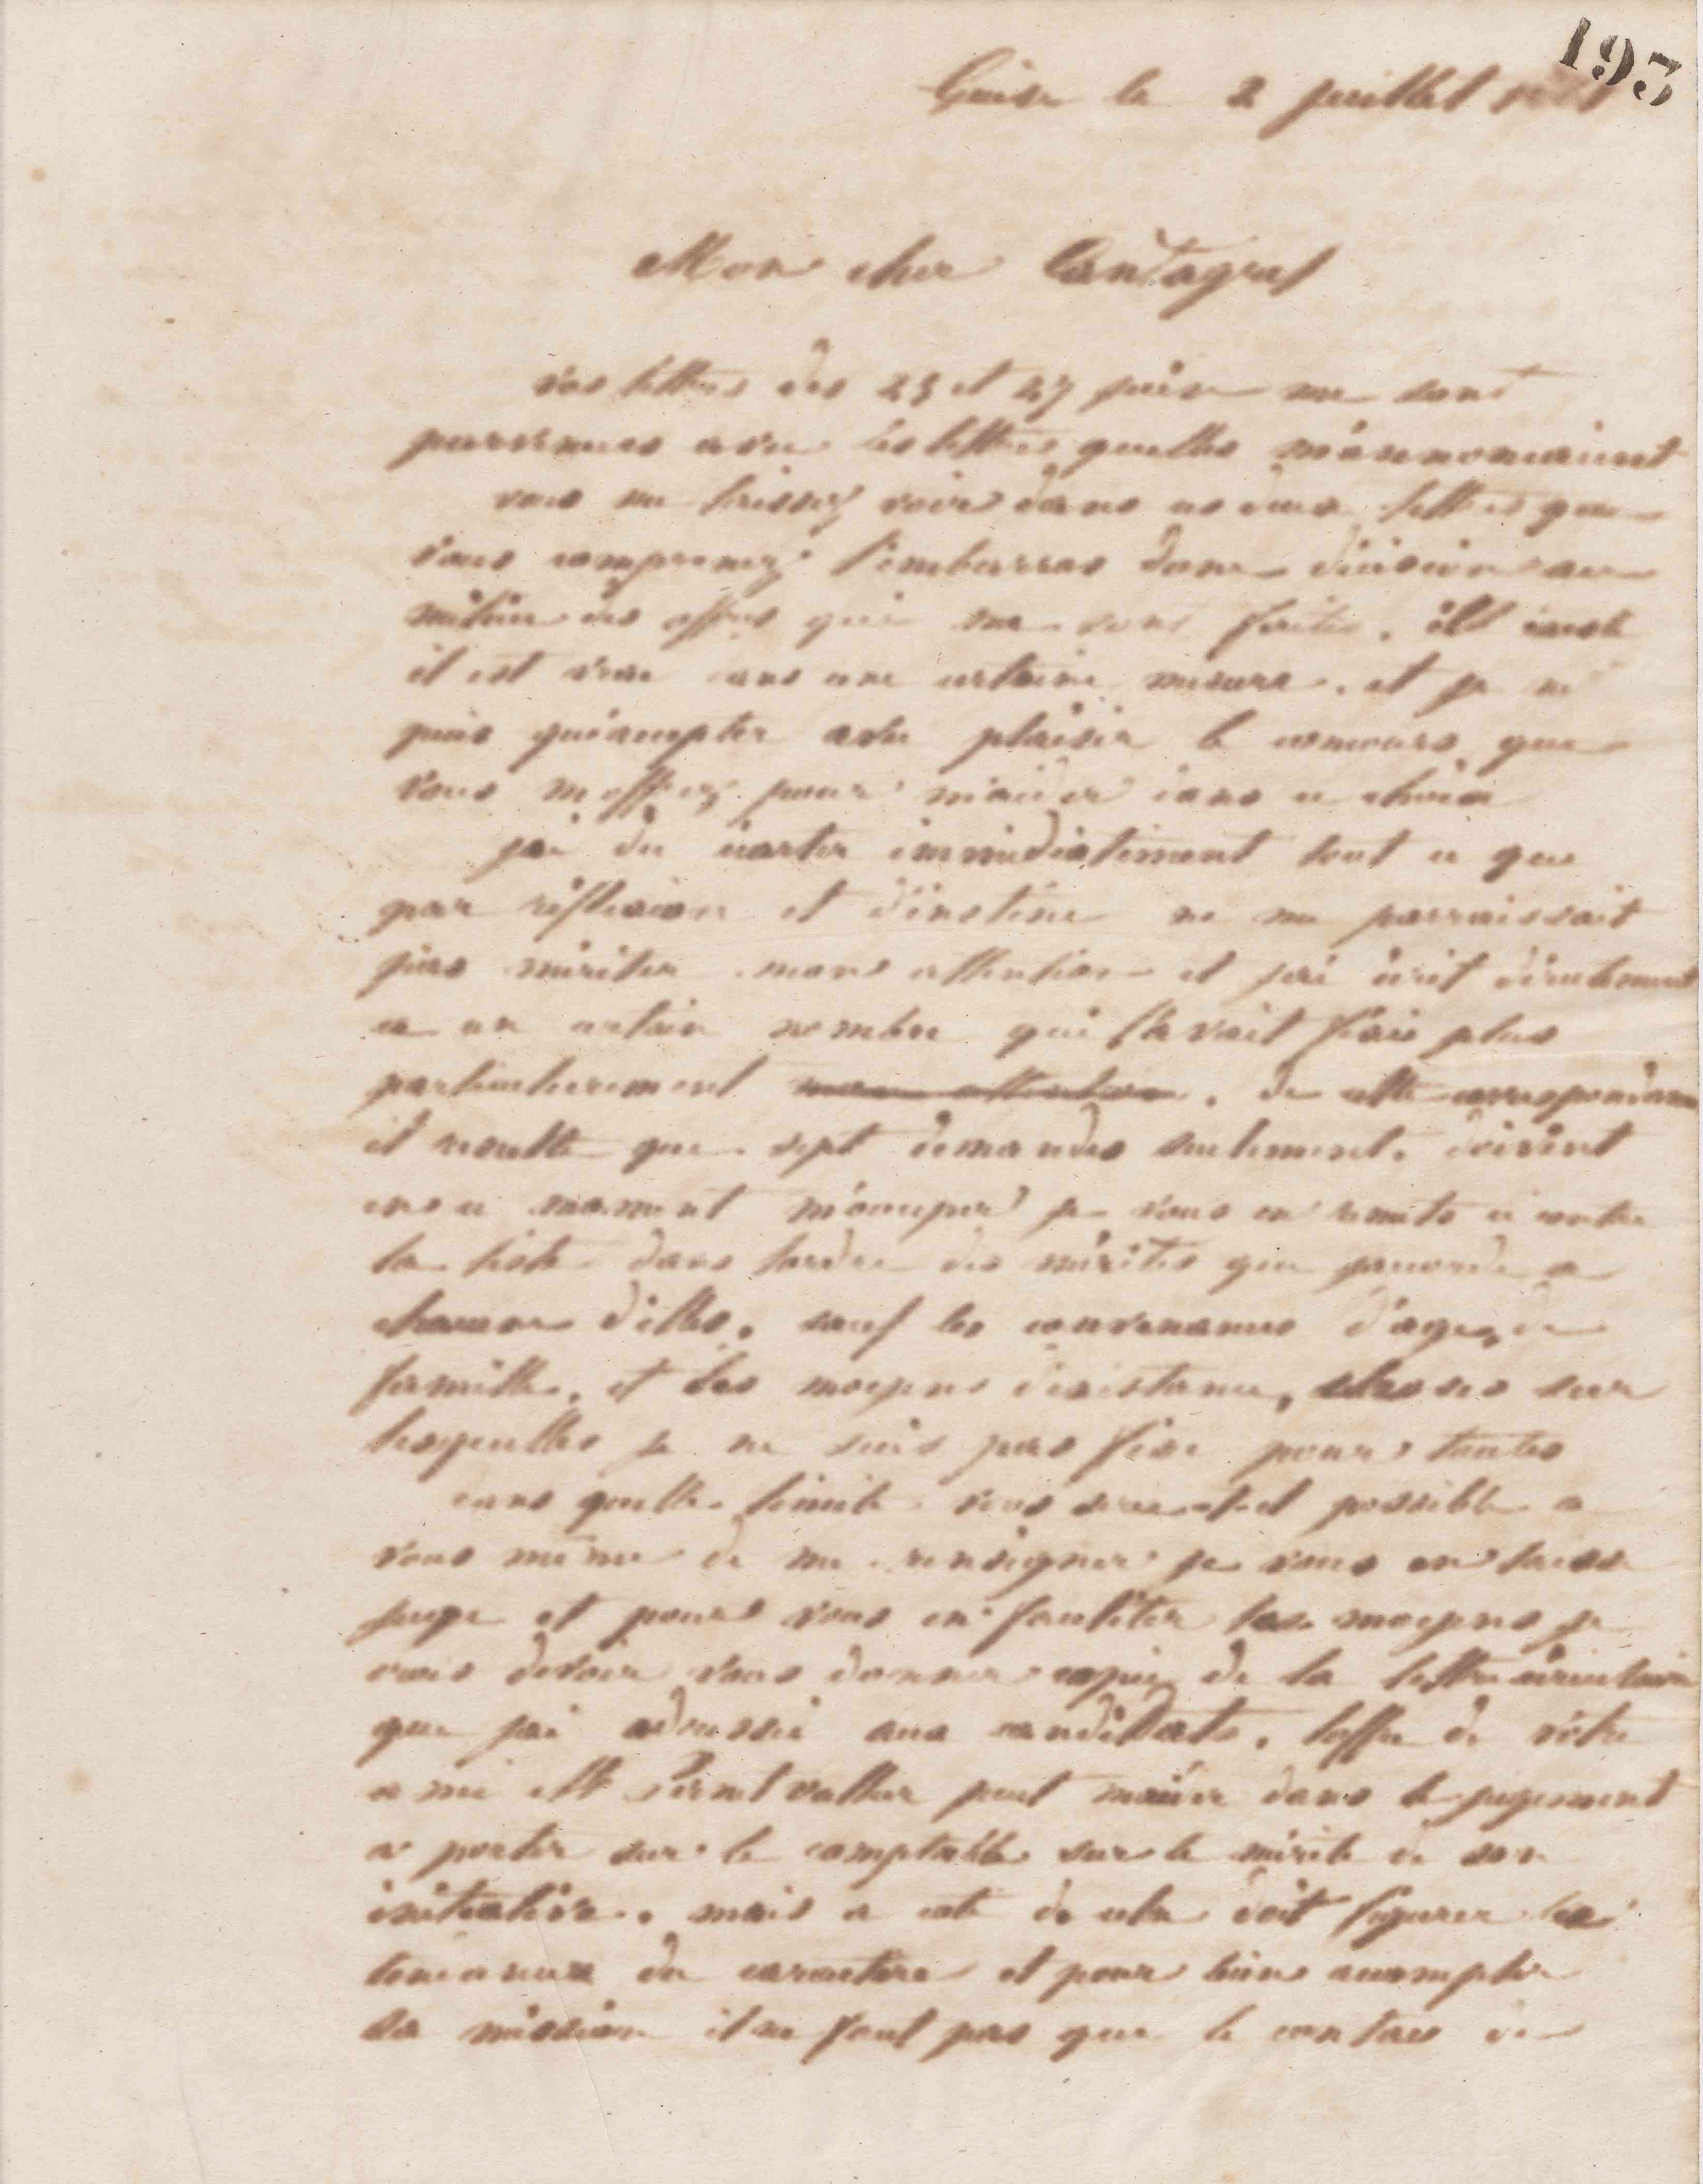 193
Guise le 2 juillet
Mon cher Cantagrel
vos lettres des 25 et 27 juin me sont
parvenues avec les lettres quelles m'annoncaient
vous me laissez voir dans ces deux lettres que
vous comprenez l'embarras dune décision au
milieu des offres qui me sont faites. il existe
il est vrai dans une certaine mesure. et je ne
puis qu'accepter avec plaisir le concours que
vous m'offrez pour m'aider dans ce choix
jai du écarter immédiatement tout ce que
par réflexion et d'instinc ne me parraissait
pas mériter mon attention et jai écrit directement
a un certain nombre qui l'avait fixé plus
particulierement mon attention. de cette correspondance
il résulte que sept demandes seulement doivent
en ce moment m'occuper je vous en remets ci contre
la liste dans lordre des mérites que jaccorde a
chacune d'elles. sauf les convenances d'ages, de
famille, et des moyens d'existance, choses sur
lesquelles je ne suis pas fixé pour toutes
dans quelle limite vous sera-t-il possible a
vous même de me renseigner je vous en laisse
juge et pour vous en faciliter les moyens je
crois devoir vous donner copie de la lettre circulaire
que jai adressée aux candidats. loffre de votre
ami et peut maider dans le jugement
a porter sur le comptable sur le mérite de son
initiative. mais a coté de cela doit figurer les
tendances du caractère et pour bien accomplir
sa mission il ne faut pas que le contact de